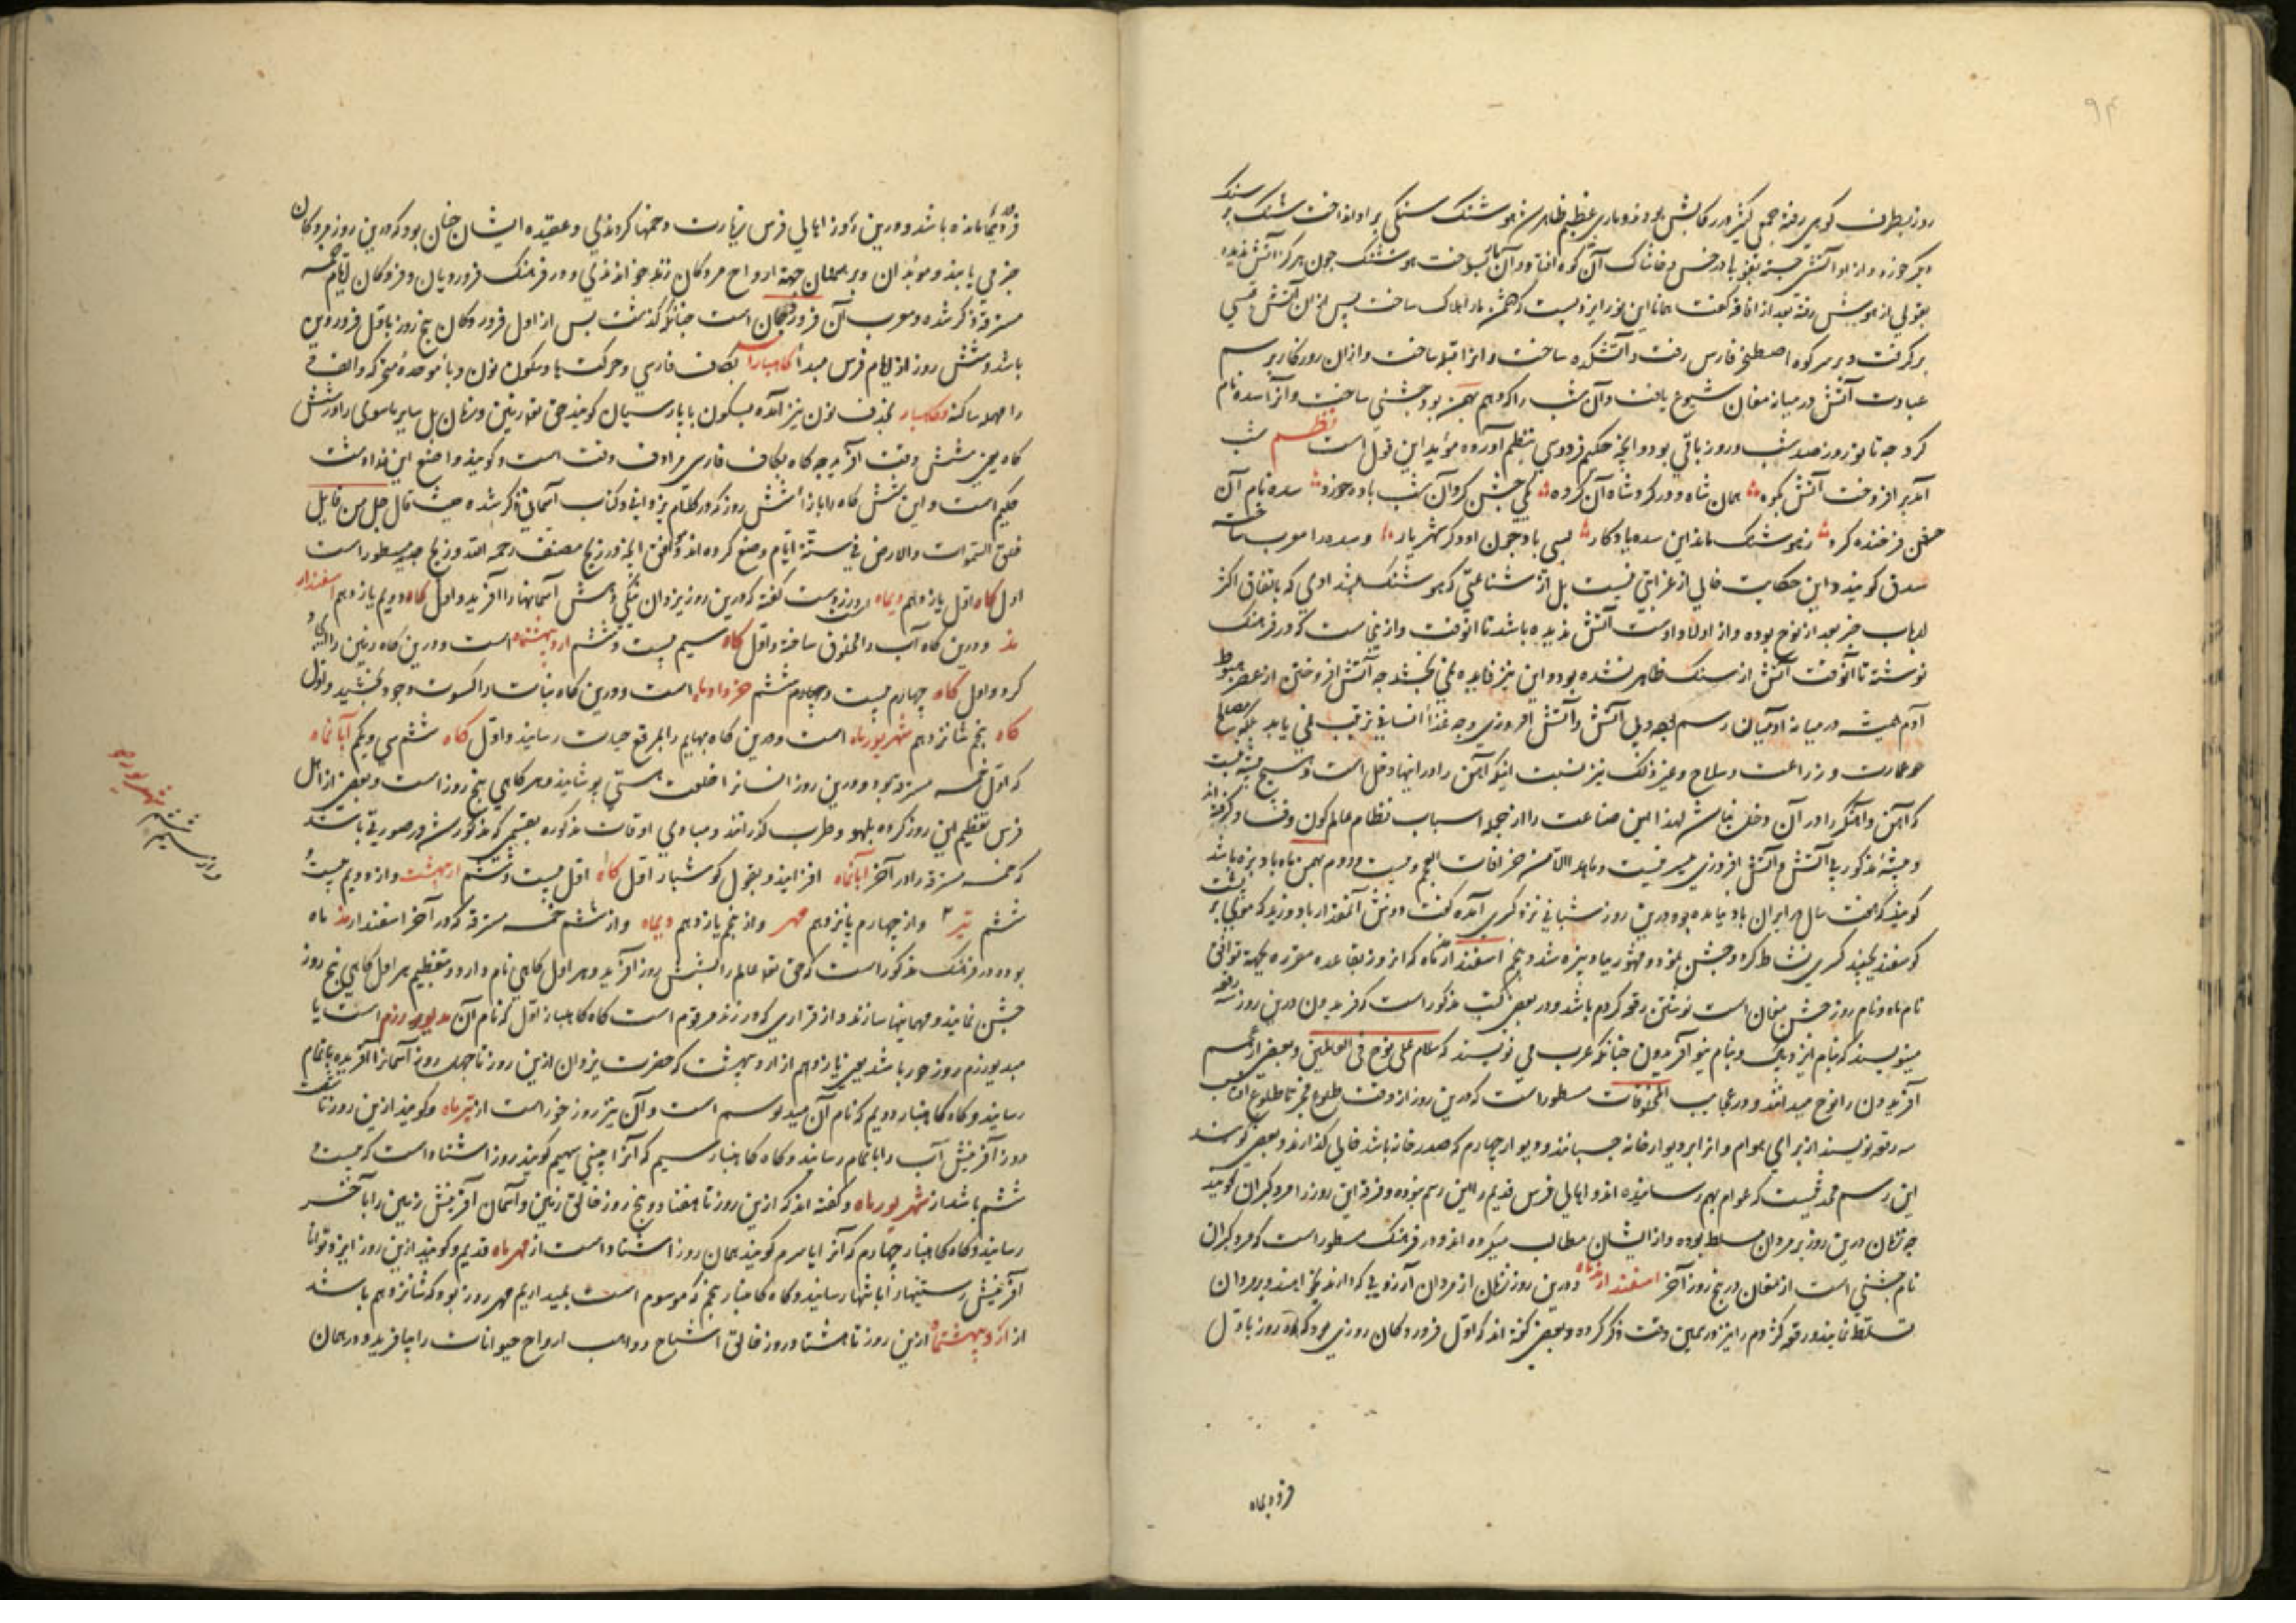 ۹۴
روز بطرف کوهی رفته جمعی کثیر در رکابش بودند و ماری عظیم ظاهر شد هوشنگ سنگی بر او انداخت سنگ بر سنگ
دیگر خورده و از او آتشی جسته در خس و خاشاک آن کوه افتاد و آن مار بسوخت هوشنگ چون هرگز آتش ندیده
بقولی از هوش رفته بعد از افاقه گفت همانا این نور ایزدیست که دشمن ما را هلاک ساخت پس از آن آتش قبسی
برگرفت و بر سر کوه اصطخر فارس رفت و آتشکده ساخت و آنرا قبله ساخت و از آن روزگار برسم
عبادت آتش در میانه مغان شیوع یافت و آن شب را که دهم بهمن بود جشنی ساخت و آنرا سده نام
کرد چه تا نوروز صد شب و روز باقی بود و آنچه حکیم فردوسی بنظم آورده مؤید این قول است نظم شب
آمد بر افروخت آتش چو کوه همان شاه و در گرد شاه آن گروه یکی جشن کرد آن شب و باده خورد سده نام آن
جشن فرخنده کرد ز هوشنگ ماند این سده یادگار بسی باد چون او دگر شهریار و سده را معرب ساخته
سدق گویند و این حکایت خالی از غرابتی نیست بل از شناعتی که هوشنگ پیشدادی که باتفاق اکثر
ارباب خبر بعد از نوح بوده و از اولاد اوست آتش ندیده باشد تا آنوقت و از اینجاست که در فرهنگ
نوشته تا آنوقت آتش از سنگ ظاهر نشده بود و این نیز فایده نمی بخشد چه آتش افروختن از عصر هبوط
آدم همیشه در میانه آدمیان رسم بوده و بی آتش و آتش افروزی وجه غذا انسانی ترتیب نمی یابد بلکه مصالح
عمارت و زراعت و سلاح و غیر ذلک نیز نسبت اینکه آهن را در اینها دخل است و هیچ پیشه نیست
که آهن و آهنگر را در آن دخلی نباشد لهذا این صناعت را از جمله اسباب نظام عالم کون و فساد گرفته اند
و پیشه مذکور بی آتش و آتش افروزی میسر نیست و ما هذا الا من خرافات العجم و بیست و دوم بهمن ماه باد بره باشد
گویند که هفت سال در ایران باد نیامده بود درین روز شبانی نزد کسری آمده گفت دوش آنمقدار باد وزید که موی بر پشت
گوسفند بجنبید کسری نشاط کرد و جشن نمود و مشهور بباد بره شد و پنجم اسفندارمذماه که آنروز بقاعده مقرره بجهة توافق
نام ماه و نام روز جشن مغان است نوشتن رقعه کژدم باشد و در بعض کتب مذکور است که فریدون درین روز سه رقعه
مینویسند که بنام ایزد و بنام نیو آفریدون چنانکه عرب می نویسند که سلام علی نوح فی العالمین و بعضی از عجم
آفریدون را نوح میدانند و در عجایب المخلوقات مسطور است که درین روز از وقت طلوع فجر تا طلوع آفتاب
سه رقعه نویسند از برای هوام و آنرا بر دیوار خانه چسپانند و دیوار چهارم که صدر خانه باشد خالی گذارند و بعضی گویند
این رسم محدثیست که عوام بهم رسانیده اند و اهالی فرس قدیم را این رسم نبوده و فرقه این روز را مردگیران گویند
چه زنان درین روز بر مردان مسلط بوده و از ایشان مطالب میکرده اند و در فرهنگ مسطور است که مردگیران
نام جشنی است از مغان در پنج روز آخر اسفندارمذماه و درین روز زنان از مردان آرزویی که دارند بخواهند و بر مردان
تسلط نمایند و رقعه کژدم را نیز در همین وقت ذکر کرده و بعضی گفته اند که اول فروردگان روزی بود که ده روز باول
فروردیماه
فروردیماه مانده باشد و درین روز اهالی فرس زیارت دخمها کردندی و عقیده ایشان چنان بود که درین روز مردگان
جزمی یابند و موبدان و برهمنان جهة ارواح مردگان زند خواندندی و در فرهنگ فرورد یان و فرودگان ایام خمسه
مسترقه ذکر شده و معرب آن فروردجان است چنانکه گذشت پس از اول فروردگان پنج روز باول فروردین
باشد و شش روز از ایام فرس مبدأ کاهنبار است بکاف فارسی و حرکت ها و سکون نون و باء موحده مفتوحه و الف و
راء مهمله ساکنه و کهنبار بحذف نون نیز آمده بسکون یا پارسیان گویند حق تعالی زمین و زمان بل سایر ماسوی را در شش
گاه یعنی شش وقت آفرید چه گاه بکاف فارسی مرادف وقت است و گویند واضع این زرادشت
حکیم است و این شش گاه را بازاء شش روز که در کلام یزدانی و کتاب آسمانی ذکر شده حیث قال جل من قایل
خلق السموات والارض فی ستة ایام وضع کرده اند و بمقتضی آنچه در زیج مصنف رحمه الله و زیج جدید مسطور است
اول گاه اول یازدهم دیماه روزیست گفته که درین روز یزدان آسمانها را آفرید و اول گاه دویم یازدهم اسفندار
مذ و درین گاه آب را مخلوق ساخته و اول گاه سیم بیست و ششم اردیبهشتماه است و درین گاه زمین را پیدا
کرد و اول گاه چهارم بیست و ششم خردادماه است و درین گاه نباتات را کسوت وجود بخشید و اول
گاه پنجم شانزدهم شهریورماه است و درین گاه بهایم را بمرقع حیات رسانید و اول گاه ششم سی و یکم آبانماه
که اول خمسه مسترقه بود و درین روز انسانرا خلعت هستی پوشانید و هر گاهی پنج روز است و بعضی از اهل
فرس تعظیم این روز کرده بلهو و طرب گذرانند و مبادی اوقات مذکوره بقسمی که مذکور شد در صورتی باشد
که خمسه مسترقه را در آخر آبانماه افزایند و بقول کوشیار اول گاه اول بیست و ششم اردیبهشت و از دویم بیست و
ششم تیر و از چهارم پانزدهم مهر و از پنجم یازدهم دیماه و از ششم خمسه مسترقه که در آخر اسفندارمذ ماه
بوده و در فرهنگ مذکور است که حق تعالی عالم را بشش روز آفرید و هر اول گاهی نام دارد و بتعظیم هر اول گاهی پنج روز
جشن نمایند و مهمانیها سازند و از قراری که در زند مرقوم است گاه کاهنبار اول که نام آن مدیورزم است یا
میدیوزرم روز خور باشد یعنی یازدهم از اردیبهشت که حضرت یزدان ازین روز تا چهل روز آسمانرا آفریده باتمام
رسانید و گاه کاهنبار دویم که نام آن میدیوسم است و آن نیز روز خور است از تیرماه و گویند ازین روز تا شصت
روز آفرینش آب را باتمام رسانید و گاه کاهنبار سیم که آنرا پیتی سهیم گویند روز اشتاد است که بیست و
ششم باشد از شهریورماه و گفته اند که ازین روز تا هفتاد و پنج روز خالق زمین و آسمان آفرینش زمین را بآخر
رسانید و گاه کاهنبار چهارم که آنرا ایاسرم گویند همان روز اشتاد است از مهرماه قدیم و گویند ازین روز ایزد توانا
آفرینش رستنیها را بانتها رسانید و گاه کاهنبار پنجم که موسوم است بمیداریم مهر روز بود که شانزدهم باشد
از اردیبهشتماه ازین روز تا هشتاد روز خالق اشباح و واهب ارواح حیوانات را بیافرید و در همان
شهریورماه